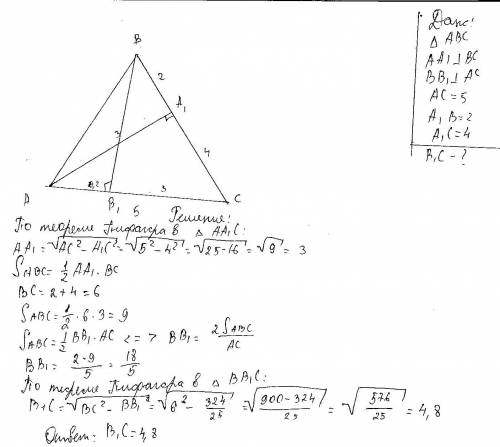 Дано:
△ ABC
AA1 ⊥ BC
BB1 ⊥ AC
AC = 5
A1B = 2
A1C = 4
B1C - ?
B
2
A1
3
4
A
B1
5
3
C
Решение:
По теореме Пифагора в △ AA1C:
AA1 = √AC² - A1C² = √5² - 4² = √25 - 16 = √9 = 3
SABC = 1/2 AA1 · BC
BC = 2 + 4 = 6
SABC = 1/2 · 6 · 3 = 9
SABC = 1/2 BB1 · AC <=> BB1 = 2SABC/AC
BB1 = 2·9/5 = 18/5
По теореме Пифагора в △ BB1C:
B1C = √BC² - BB1² = √6² - 324/25 = √900 - 324/25 = √576/25 = 4,8
Ответ: B1C = 4,8